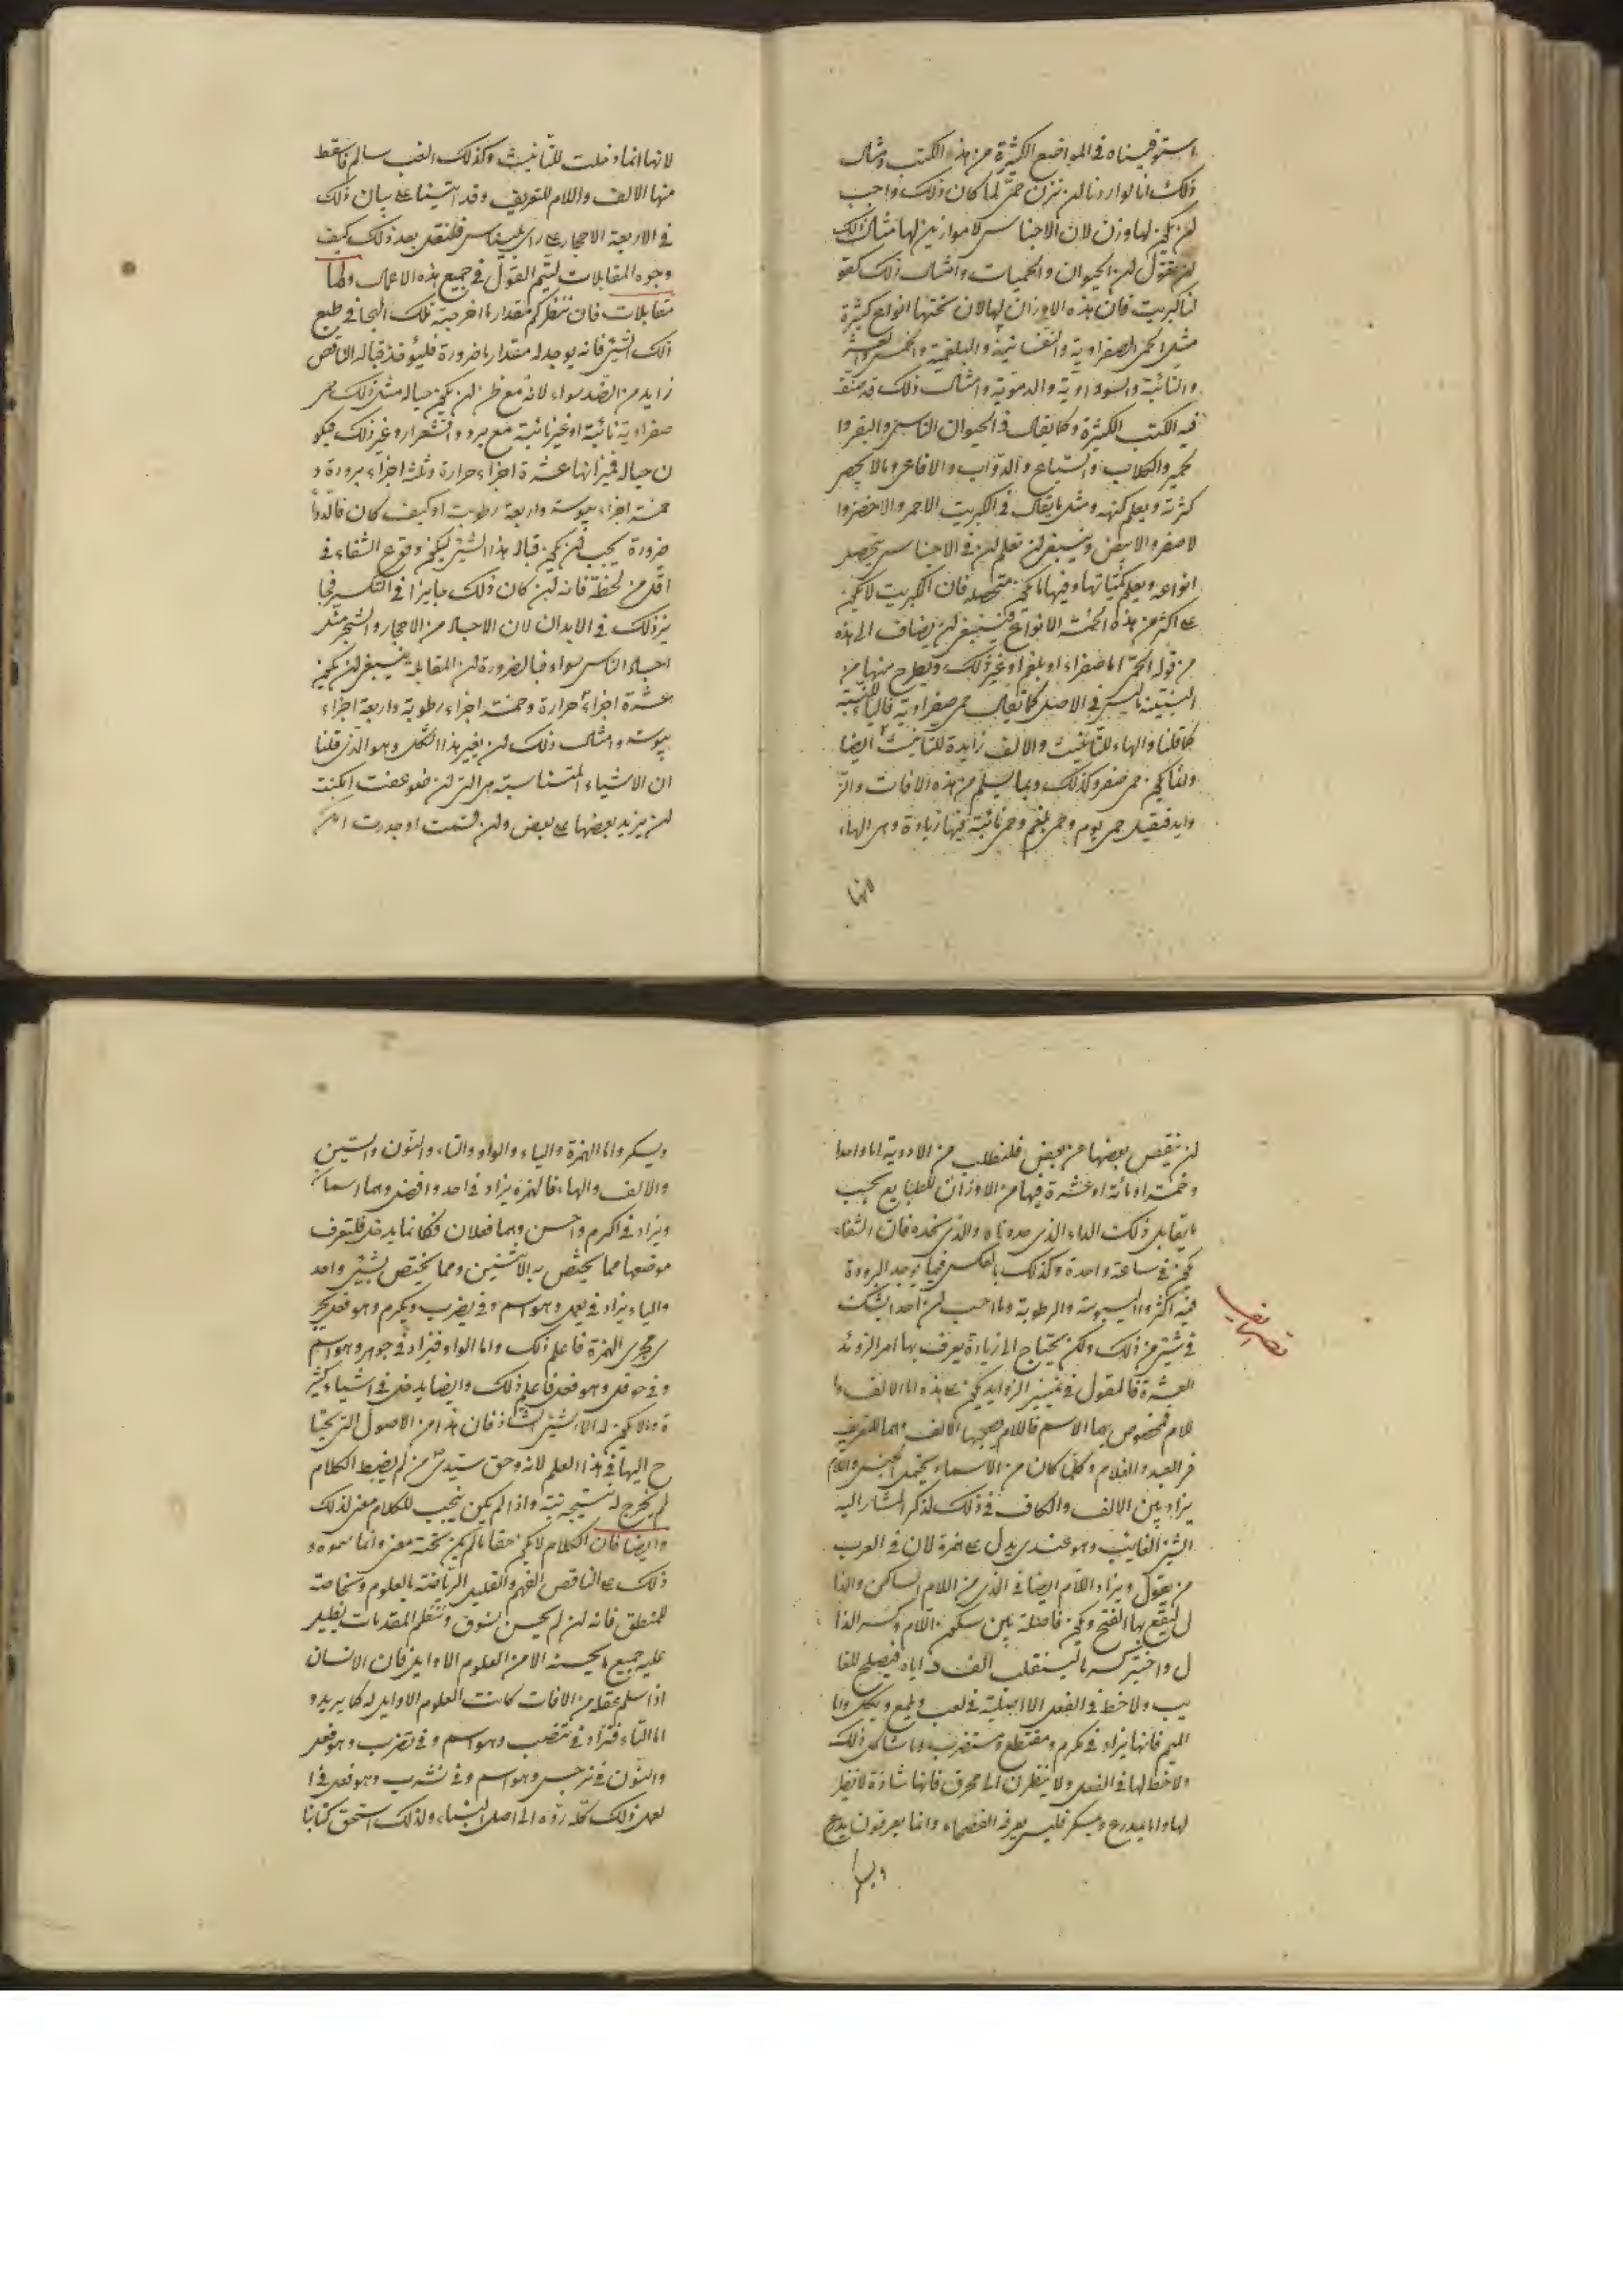 استوفيناه في المواضع الكثيرة من هذه الكتب ومثال
ذلك انا لو اردنا ان نزن حمى لما كان ذلك واجب
ان يكون لها وزن لان الاجناس لا موازين لها مثال ذلك
ان نقول ان الحيوان والحميات وامثال ذلك كقو
لنا كبريت فان هذه الاوزان لها لان تحتها انواع كثيرة
مثل الحمى الصفراوية والنفسانية والبلغمية والخمس والعشر
والنائبة والسوداوية والدموية وامثال ذلك قد صنف
فيه الكتب الكثيرة وكما يقال في الحيوان الناس والبقر وا
لحمير والكلاب والسباع والدواب والافاعي وما لا يحصر
كثرته ويعلم كنهه ومثل ما يقال في الكبريت الاحمر والاخضر وا
لاصفر والابيض وينبغي ان تعلم ان في الاجناس يتحصل
انواعه ويعلم كمياتها وفيها ما يكون متحصله فان الكبريت لا يكون
على اكثر من هذه الخمسة الانواع فينبغي ان يضاف الى هذه
من قوله الحمى اما صفراء او بلغم او غير ذلك ويطرح منها من
البنية ما ليس في الاصل كما يقال حمى صفراوية فالياء للنسبة
كما قلنا والهاء للتانيث والالف زايدة للتانيث ايضا
وانما يكون حمى صفر وكذلك وبما يسلم من هذه الافات والز
وايد فيقيل حمى يوم وحمى بلغم وحمى نائبة فيها زيادة وهي الهاء
لانها
لانها انما دخلت للتانيث وكذلك الغب سالم فاسقط
منها الالف واللام للتعريف وقد اتينا على بيان ذلك
في الاربعة الاحجار على راي بليناس فلنقل بعد ذلك كيف
وجوه المقابلات ليتم القول في جميع هذه الاعمال واما
مقابلات فان تنظر كم مقدار ما اخرجته تلك الهجا في طبع
ذلك الشيء فانه يوجد له مقدار ما ضرورة فليؤخذ قباله الناقص
زايد من الضد سواء لانه مع ظن ان يكون حياله مثل ذلك حمى
صفراوية نائبة او غير نائبة مع برد واقشعرار وغير ذلك فيكو
ن حياله فيزانها عشرة اجزاء حرارة وثلثة اجزاء برودة و
خمسة اجزاء يبوسة واربعة رطوبة او كيف كان فالدواء
ضرورة يجب ان يكون قباله هذا الشيء ليكون وقوع الشفاء في
اقل من لحظة فانه ان كان ذلك جايزا في التكسير فجا
يز ذلك في الابدان لان الاجساد من الاحجار والشجر مثل
اجساد الناس سواء فبالضرورة ان المقابلة ينبغي ان يكون
عشرة اجزاء حرارة وخمسة اجزاء رطوبة واربعة اجزاء
يبوسة وامثال ذلك ان يغير هذا الشكل وهو الذي قلنا
ان الاشياء المتناسبة هي التي ان ضوعفت امكنت
ان يزيد بعضها على بعض وان قسمت او جذرت امكن
ان ينقص بعضها عن بعض فلنطلب من الادوية اما واحدا
وخمسة او مائة او عشرة فيها من الاوزان للطبايع بحسب
ما يقابل ذلك الداء الذي حددناه والذي نحده فان الشفاء
يكون في ساعة واحدة وكذلك بالعكس فيما يوجد البرودة
فيه اكثر واليبوسة والرطوبة وما احب ان احدا يشك
في شيء من ذلك ولكن يحتاج الى زيادة يعرف بها امر الزوئد
تصريف
العشرة فالقول في تمييز الزوايد يكون على هذه اما الالف وا
للام فمخصوص بهما الاسم فاللام يصحبها الالف وهما للتعريف
في العبد والغلام وكلما كان من الاسماء يحتمل الجنس واللام
يزاد بين الالف والكاف في ذلك لذكر المشار اليه
الشيء الغايب وهو عندي يدل على همزة لان في العرب
من يقول ويزاد اللام ايضا في الذي من اللام الساكن والذا
ل ليقع بها الفتح ويكون فاصلة بين سكون اللام وكسر الذا
ل واختير كسر ما لينقلب الف ه اياه فيصلح للغا
يب ولا حظ في الفعل الا اصلية في لعب ولمع ويكل واما
الميم فانها يزاد في مكرم ومقتطع ومستضرب وما شاكل ذلك
ولا حظ لها في الفعل ولا ينظرن الى مخرق فانها شاذة لا نظير
لها واما يمدرع ويمسكر فليس يعرفه الفصحاء وانما يعرفون يدرع
ويسكر
ويسكر واما الهمزة والياء والواو والتاء والنون والسين
والالف والهاء فالهمزة يزاد في احد وافضل وهما اسمان
ويزاد في اكرم واحسن وهما فعلان فكانما يدخل فليتعرف
موضعها مما يختص به الاثنين ومما يختص بشيء واحد
والياء يزاد في يعمل وهو اسم وفي يضرب ويكرم وهو فعل يجر
ى مجرى الهمزة فاعلم ذلك واما الواو فيزاد في جوهر وهو اسم
وفي حوقل وهو فعل فاعلم ذلك وايضا يدخل في اشياء كثير
ة والا يكون له الا الشيء الشاذ فان هذا من الاصول التي يحتا
ج اليها في هذا العلم لانه وحق سيدي من لم يضبط الكلام
لم يخرج له نتيجة بتة واذا لم يكن يجب للكلام معنى لذلك
وايضا فان الكلام لا يكون حقا ما لم يكن تحته معنى وانما سموه و
ذلك على الناقص الفهم والقليل الرياضة بالعلوم وبخاصة
للمنطق فانه ان لم يحسن يسوق وتنظم المقدمات بطل
عليه جميع ما يحسنه الا من العلوم الاوايل فان الانسان
اذا سلم عقله من الافات كانت العلوم الاوايل له كما يريد و
اما التاء فتزاد في تنضب وهو اسم وفي تضرب وهو فعل
والنون في نرجس وهو اسم وفي نشرب وهو فعل في ا
لعمل ذلك كله رده الى اصل البناء ولذلك استحق كتابنا